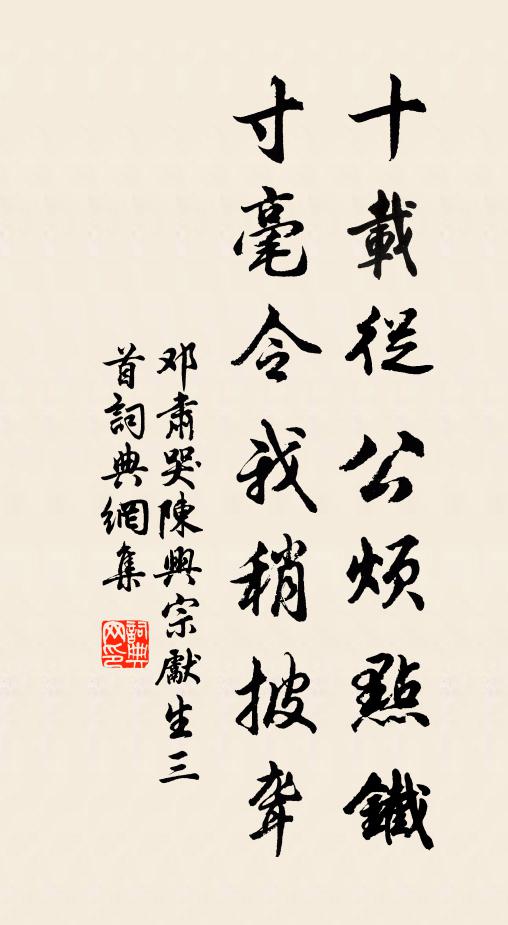 十載從公煩點鐵
寸毫令我稍披聾
邓肅哭陳興宗獻生三
首詞典網集
詞典
网印